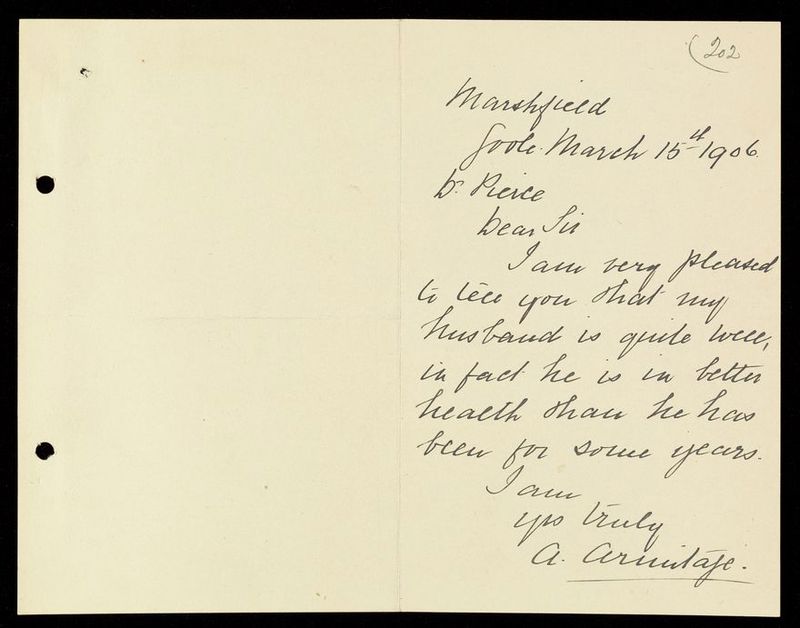 (202
Marshfield
Goole. March 15th 1906.
Dr. Pierce
Dear Sir
I am very pleased
to tell you that my
husband is quite well,
in fact he is in better
health than he has
been for some years.
I am
yrs truly
A. Armitage.